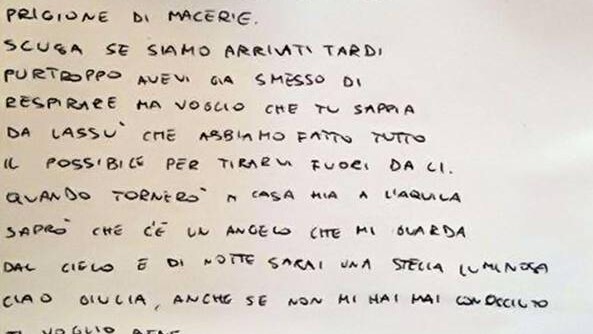 PRIGIONE DI MACERIE.
SCUSA SE SIAMO ARRIVATI TARDI
PURTROPPO AVEVI GIA SMESSO DI
RESPIRARE MA VOGLIO CHE TU SAPPIA
DA LASSU' CHE ABBIAMO FATTO TUTTO
IL POSSIBILE PER TIRARVI FUORI DA LI.
QUANDO TORNERO' A CASA MIA A L'AQUILA
SAPRO' CHE C'È UN ANGELO CHE MI GUARDA
DAL CIELO E DI NOTTE SARAI UNA STELLA LUMINOSA
CIAO GIULIA, ANCHE SE NON MI HAI MAI CONOSCIUTO
TI VOGLIO BENE